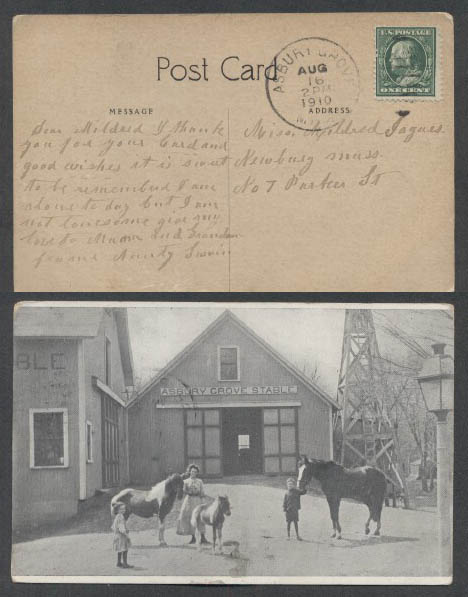 Post Card
ASBURY GROVE
AUG
16
2 PM
1910
U.S. POSTAGE
ONE CENT
MESSAGE
ADDRESS
Dear Mildred I thank
you for your Card and
good wishes it is sweet
to be remembered I am
alone to day but I am
not lonesome give my
love to Mama and Grandma
from Aunty
Miss. Mildred Jaques
Newbury mass.
No 7 Parker St
BLE
ASBURY GROVE STABLE